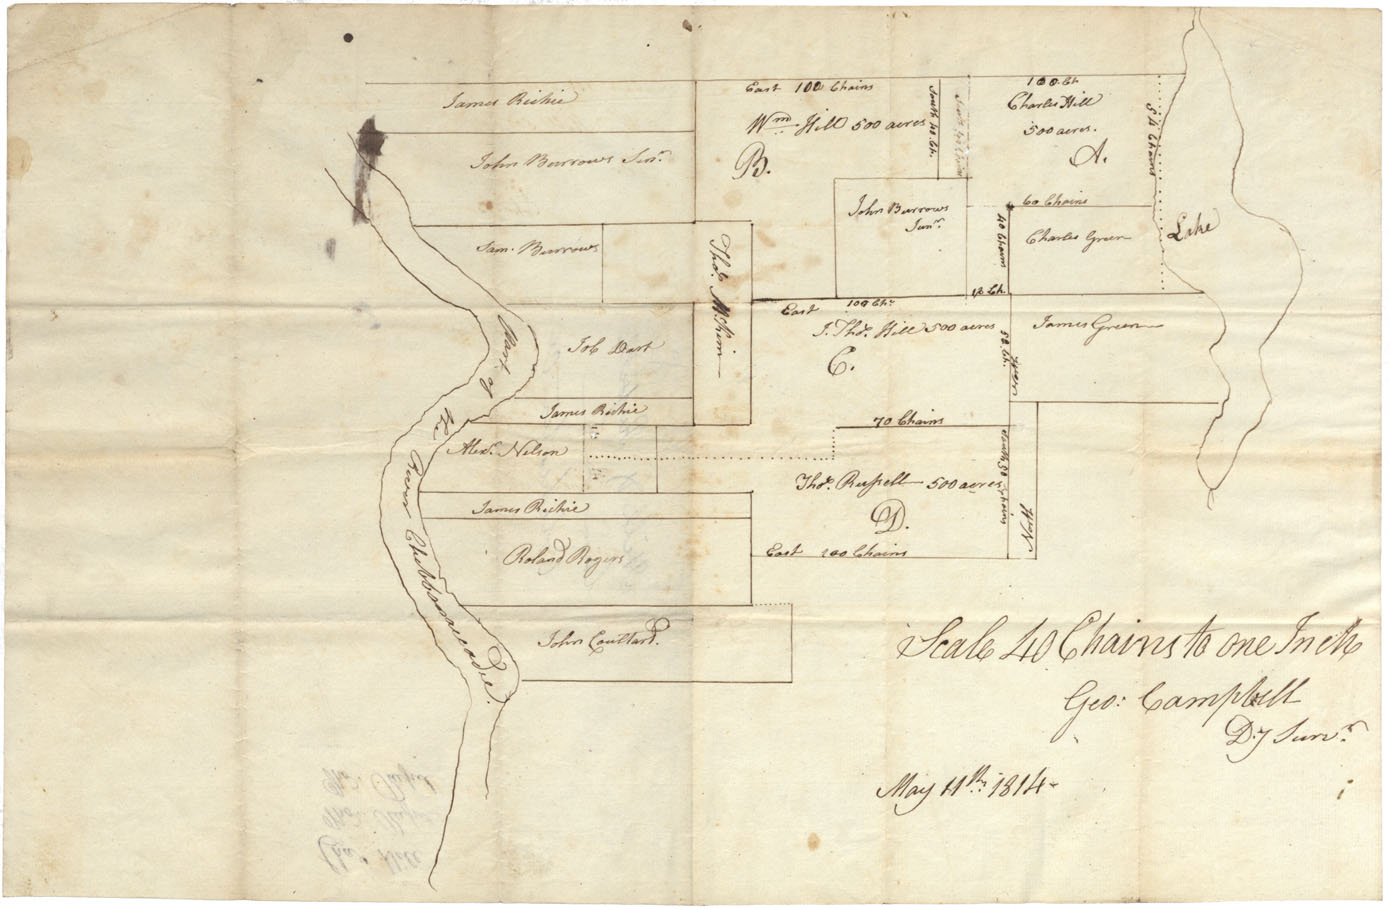 James Richie
John Burrows Senr.
Sam. Burrows
Job Dart
James Richie
Alexr. Nelson
James Richie
Roland Rogers
John Coultard.
Part of the River Chebbenaccadie.
Thos. McKim
East 100 Chains
Wm. Hill 500 acres
B.
South 40 Ch.
100 Ch
Charles Hill
500 acres.
A.
54 Chains
60 Chains
40 Chains
Charles Green
Lake
John Burrows
Junr.
12 Ch.
East 100 Chs.
J. Thos. Hill 500 acres
C.
50 Ch.
James Green
70 Chains
Thos. Russell 500 acres
D.
South 50 Chains
East 100 Chains
Scale 40 Chains to one Inch
Geo: Campbell
Dy Survr.
May 11th. 1814
Chas. Hill